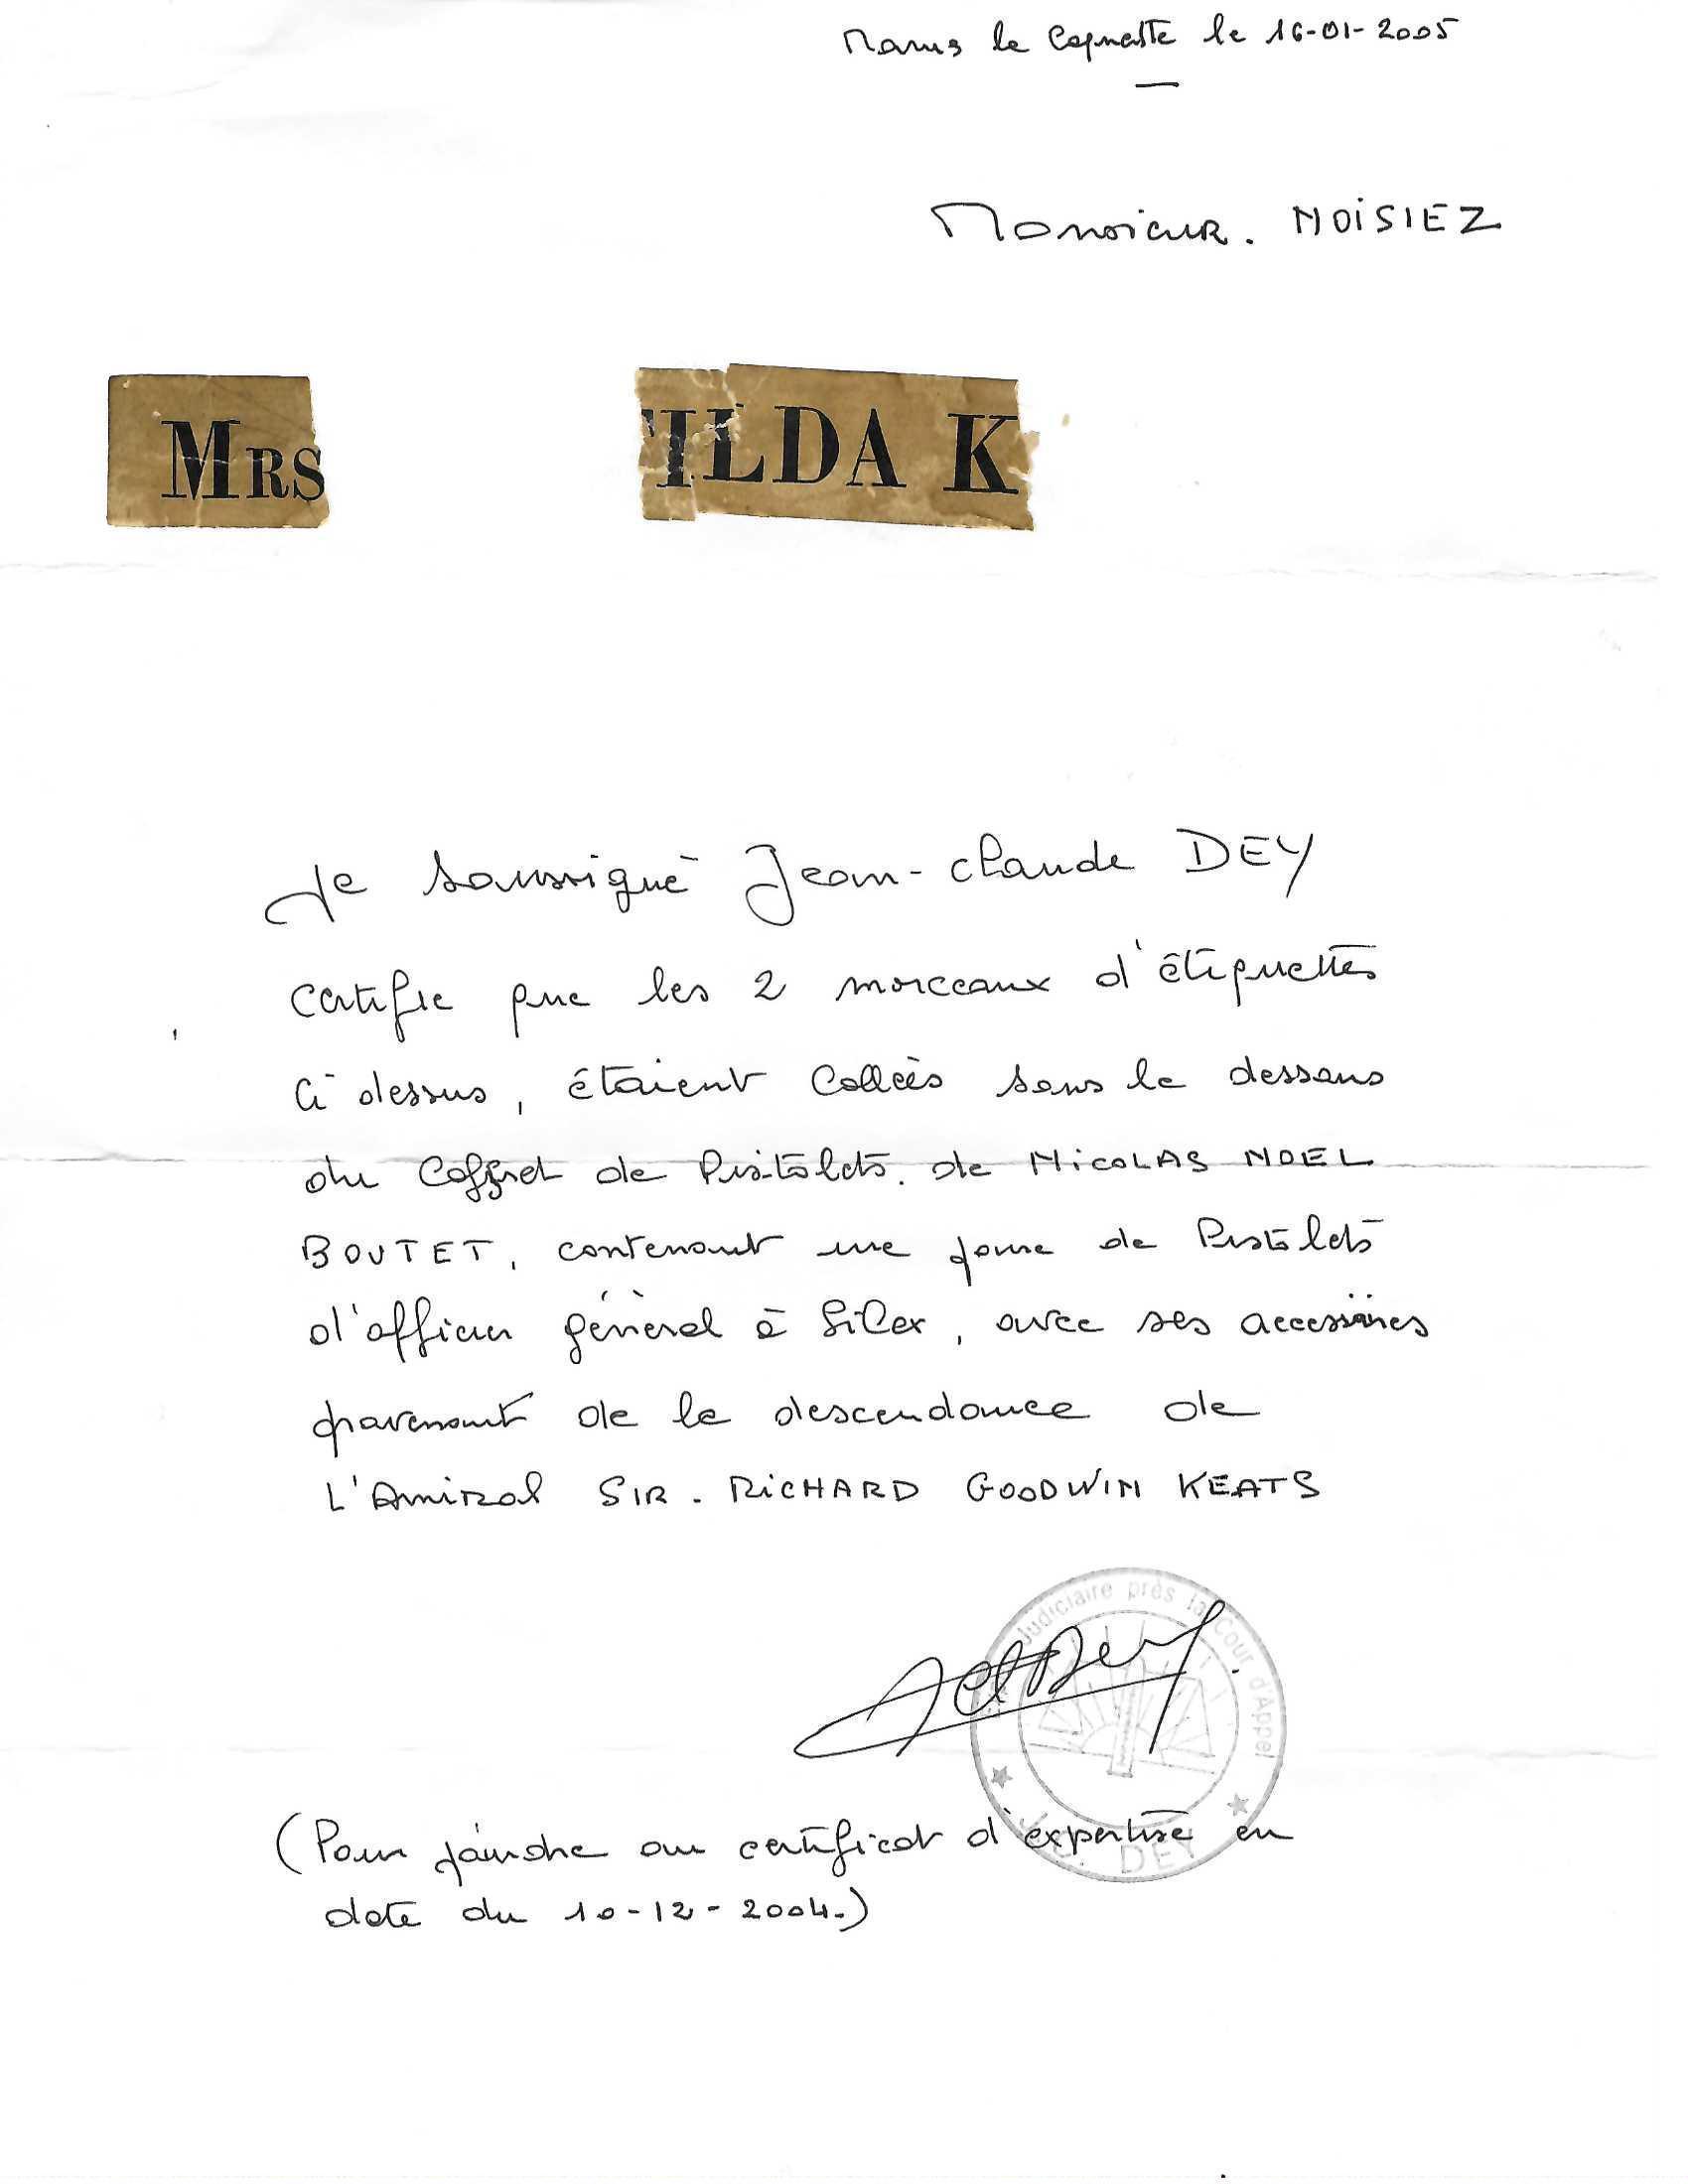 Marnes la Coquette le 16-01-2005
Monsieur. NOISIEZ
MRS TILDA K
Je soussigné Jean-Claude DEY
certifie que les 2 morceaux d'étiquettes
ci dessus, étaient collées sous le dessous
du Coffret de Pistolets. de NICOLAS NOEL
BOUTET, contenant une paire de Pistolets
d'officier général à Silex, avec ses accessoires
provenant de la descendance de
L'Amiral SIR. RICHARD GOODWIN KEATS
Judiciaire près la Cour d'Appel
J.C. DEY
JCl Dey.
(Pour joindre au certificat d'expertise en
date du 10-12-2004.)